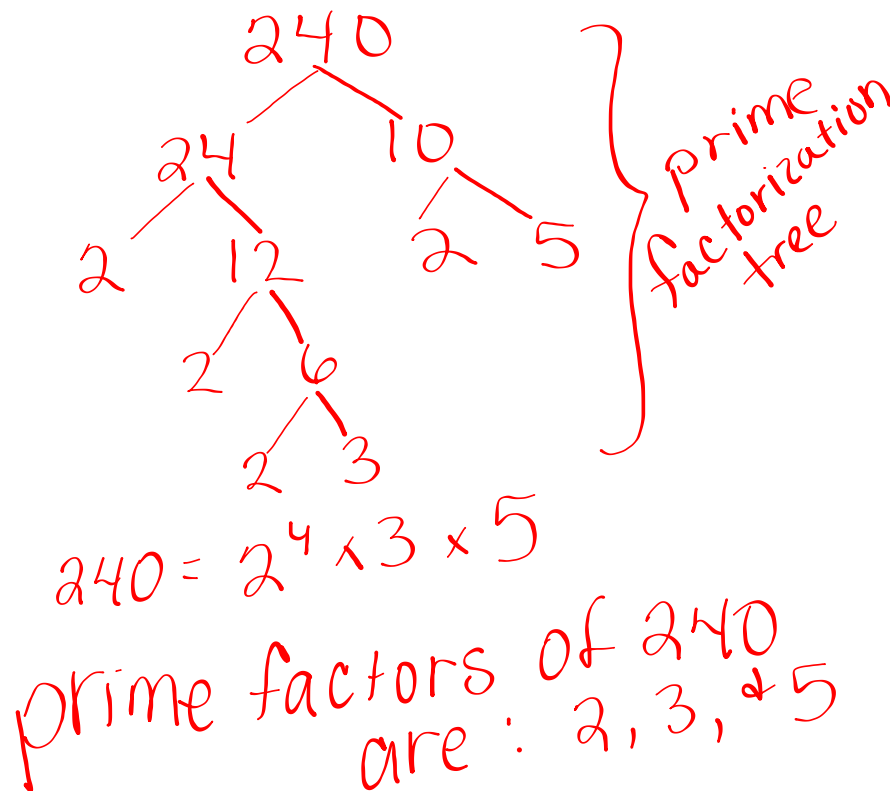 240
24 10
2 12 2 5
2 6
2 3
prime
factorization
tree
240 = 2⁴ x 3 x 5
prime factors of 240
are : 2, 3, & 5